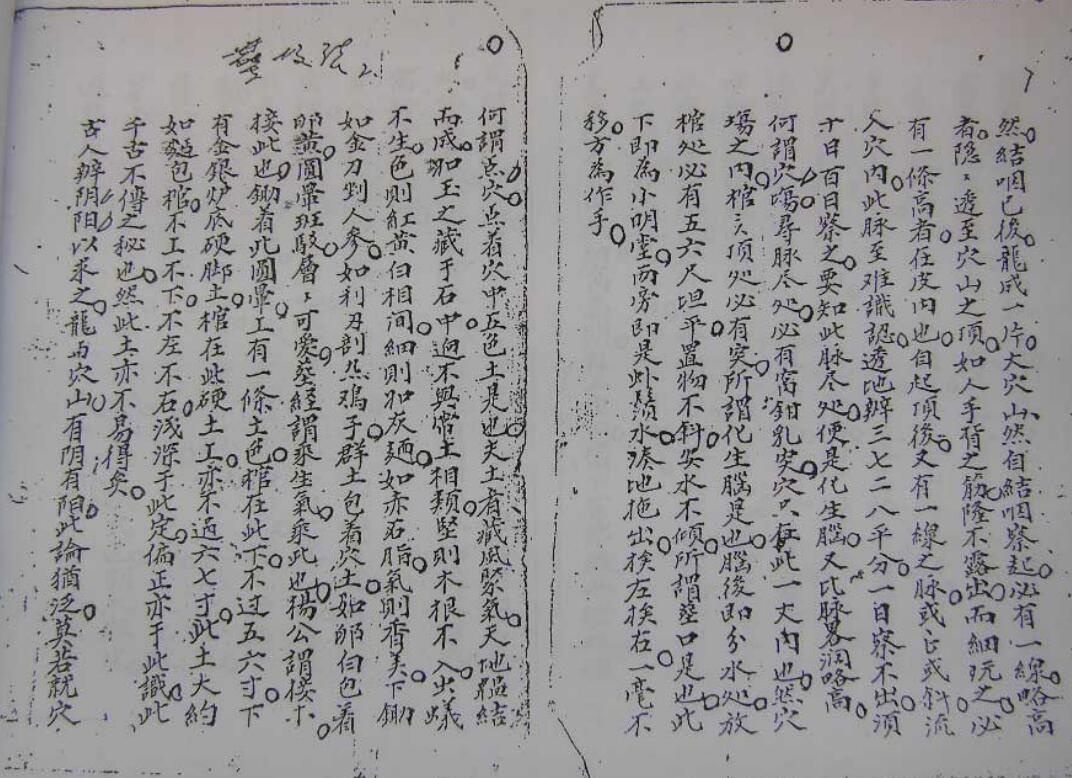 然結咽已後龍成一片大穴山然自結咽察起必有一線略高
者隐々透至穴山之項如人手背之筋隆不露出而細玩之必
有一條高者在皮内也自起頂後又有一線之脉或正或斜流
入穴内此脉至难識認透地辨三七二八平分一日察不出須
十日百日察之要知此脉尽处便是化生腦又比脉畧濶略高
何謂穴場尋脉尽处必有窩鉗乳突穴只在此一丈内也然穴
場之内棺之頂处必有突所謂化生腦是也腦後即分水处放
棺处必有五六尺坦平置物不斜安水不傾所謂葬口是也此
下即為小明堂两旁即是虾鬚水湊地拖出挨左挨右一毫不
移方為作手
何謂点穴点着穴中五色土是也夫土者藏風聚氣天地結
而成如玉之藏于石中逈不與常土相類堅則木根不入虫蟻
不生色則紅黄白相间細則如灰麺如赤石脂氣則香美下鋤
如金刀剉人參如利刃剖熟鸡子群土包着穴土如卵白包着
卵黄圓暈班駁層々可愛葬經謂乘生氣乘此也楊公謂接木
接此也鋤着此圓暈工有一條土色棺在此下不过五六寸下
有金銀炉底硬脚土棺在此硬土工亦不過六七寸此土大約
如麺包棺不工不下不左不右浅深于此定偏正亦于此識此
千古不傳之秘也然此土亦不易得矣
古人辨阴阳以求之龍与穴山有阴有阳此論猶泛莫若就穴